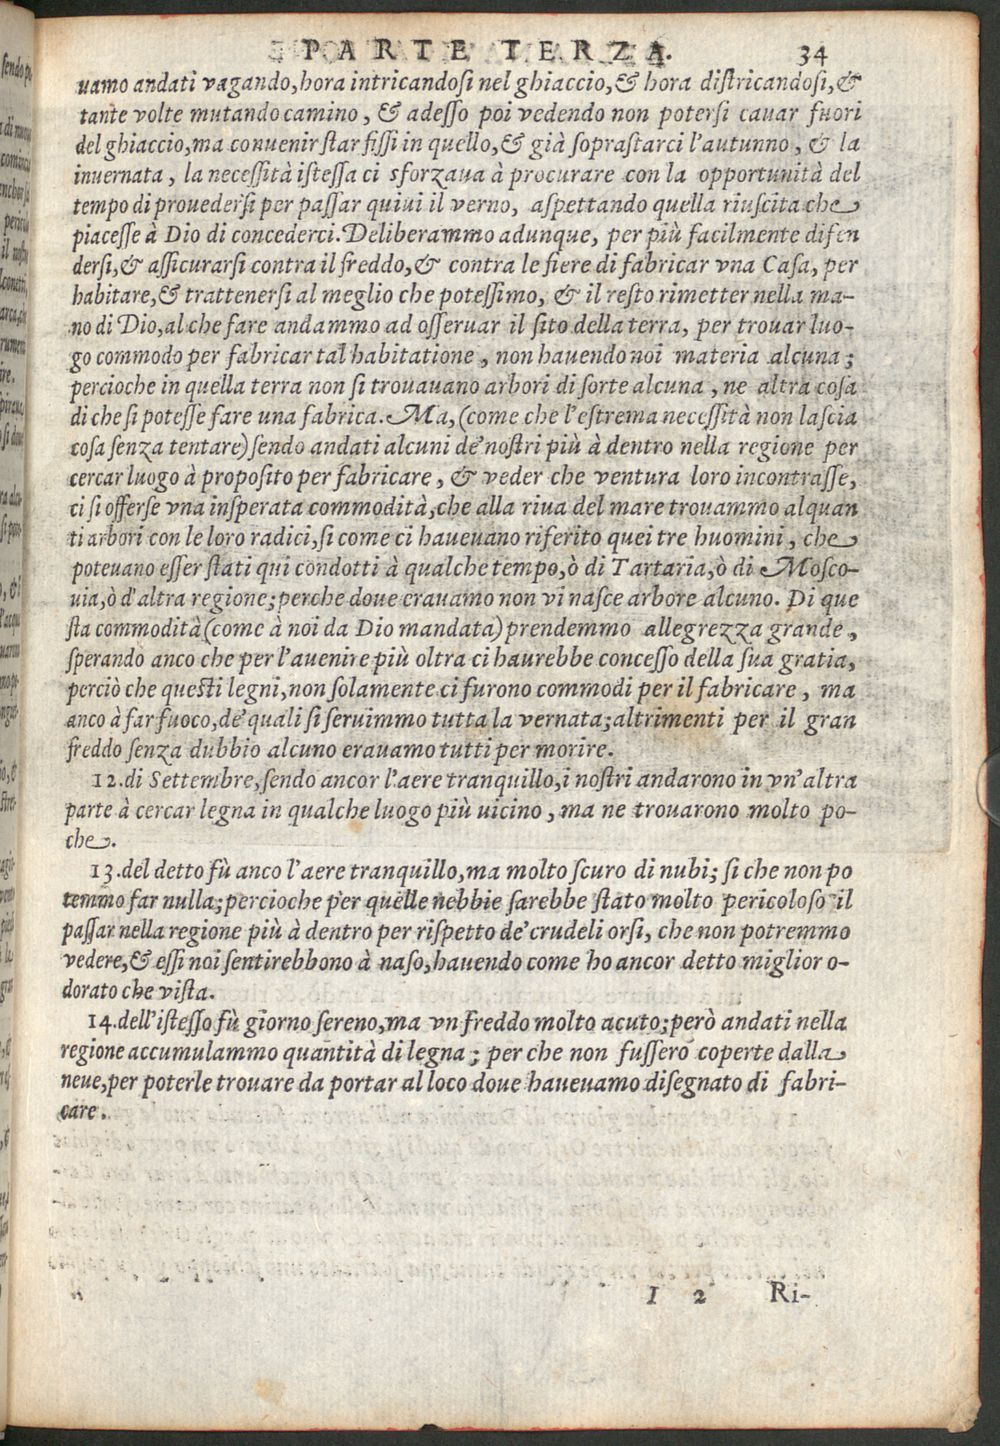 PARTE TERZA. 34
uamo andati vagando, hora intricandosi nel ghiaccio, & hora districandosi, &
tante volte mutando camino, & adesso poi vedendo non potersi cauar fuori
del ghiaccio, ma conuenir star fissi in quello, & già soprastarci l'autunno, & la
inuernata, la necessità istessa ci sforzaua à procurare con la opportunità del
tempo di prouedersi per passar quiui il verno, aspettando quella riuscita che
piacesse à Dio di concederci. Deliberammo adunque, per più facilmente difen
dersi, & assicurarsi contra il freddo, & contra le fiere di fabricar vna Casa, per
habitare, & trattenersi al meglio che potessimo, & il resto rimetter nella ma-
no di Dio, al che fare andammo ad osseruar il sito della terra, per trouar luo-
go commodo per fabricar tal habitatione, non hauendo noi materia alcuna;
percioche in quella terra non si trouauano arbori di sorte alcuna, ne altra cosa
di che si potesse fare una fabrica. Ma, (come che l'estrema necessità non lascia
cosa senza tentare) sendo andati alcuni de' nostri più à dentro nella regione per
cercar luogo à proposito per fabricare, & veder che ventura loro incontrasse,
ci si offerse vna insperata commodità, che alla riua del mare trouammo alquan
ti arbori con le loro radici, si come ci haueuano riferito quei tre huomini, che
poteuano esser stati qui condotti à qualche tempo, ò di Tartaria, ò di Mosco-
uia, ò d'altra regione; perche doue erauamo non vi nasce arbore alcuno. Di que
sta commodità (come à noi da Dio mandata) prendemmo allegrezza grande,
sperando anco che per l'auenire più oltra ci haurebbe concesso della sua gratia,
perciò che questi legni, non solamente ci furono commodi per il fabricare, ma
anco à far fuoco, de' quali si seruimmo tutta la vernata; altrimenti per il gran
freddo senza dubbio alcuno erauamo tutti per morire.
12. di Settembre, sendo ancor l'aere tranquillo, i nostri andarono in vn' altra
parte à cercar legna in qualche luogo più uicino, ma ne trouarono molto po-
che.
13. del detto fù anco l'aere tranquillo, ma molto scuro di nubi; si che non po
temmo far nulla; percioche per quelle nebbie sarebbe stato molto pericoloso il
passar nella regione più à dentro per rispetto de' crudeli orsi, che non potremmo
vedere, & essi noi sentirebbono à naso, hauendo come ho ancor detto miglior o-
dorato che vista.
14. dell'istesso fù giorno sereno, ma vn freddo molto acuto; però andati nella
regione accumulammo quantità di legna; per che non fussero coperte dalla
neue, per poterle trouare da portar al loco doue haueuamo disegnato di fabri-
care.
I 2 Ri-